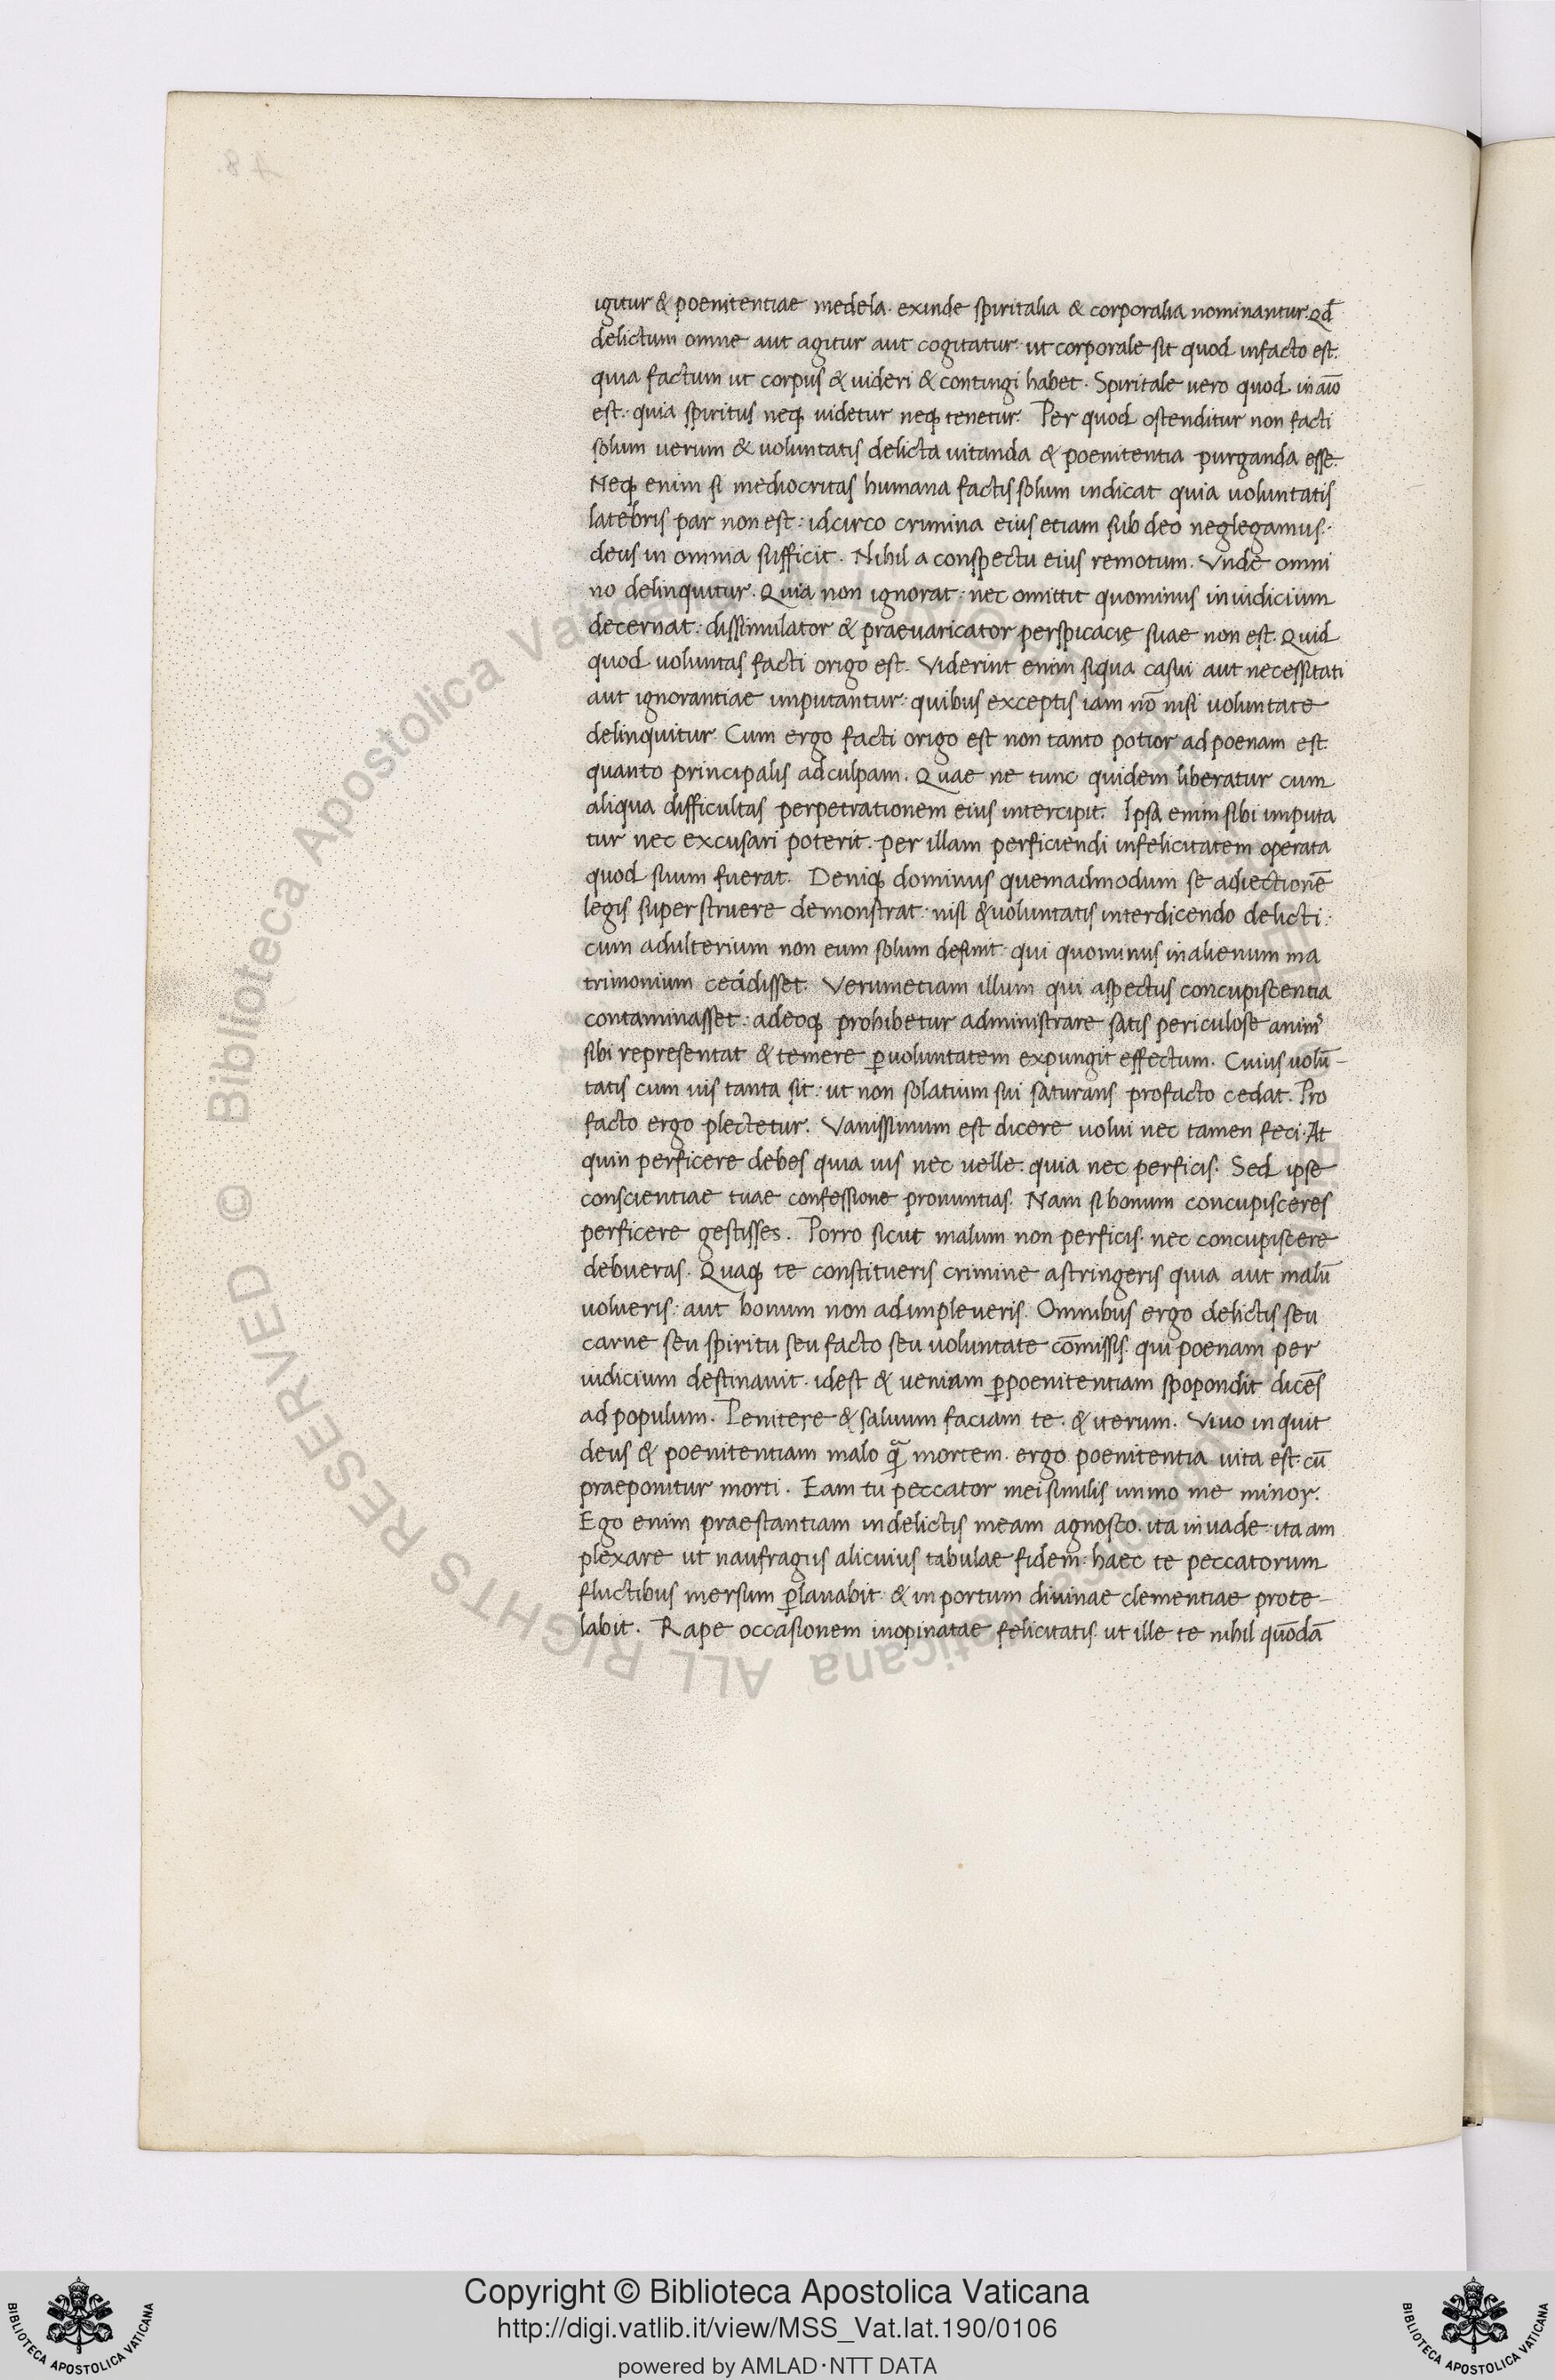 igitur & poenitentiae medela. exinde spiritalia & corporalia nominantur. Qđ
delictum omne aut agitur aut cogitatur. ut corporale sit quod infacto est.
quia factum ut corpus & uideri & contingi habet. Spiritale uero quod in aīo
est. quia spiritus neq; uidetur neq; tenetur. Per quod ostenditur non facti
solum uerum & uoluntatis delicta uitanda & poenitentia purganda esse.
Neq; enim si mediocritas humana factis solum iudicat quia uoluntatis
latebris par non est: idcirco crimina eius etiam sub deo neglegamus.
deus in omnia sufficit. Nihil a conspectu eius remotum. Vnde omni
no delinquitur. Quia non ignorat. nec omittit quominus in iudicium
decernat: dissimulator & praeuaricator perspicacię suae non est. Quid
quod uoluntas facti origo est. Viderint enim siqua casui aut necessitati
aut ignorantiae imputantur: quibus exceptis iam nō nisi uoluntate
delinquitur. Cum ergo facti origo est non tanto potior ad poenam est.
quanto principalis ad culpam. Quae ne tunc quidem liberatur cum
aliqua difficultas perpetrationem eius intercipit. Ipsa enim sibi imputa
tur nec excusari poterit. per illam perficiendi infelicitatem operata
quod suum fuerat. Deniq; dominus quemadmodum se adiectionē
legis superstruere demonstrat: nisi & uoluntatis interdicendo delicti:
cum adulterium non eum solum definit. qui quominus in alienum ma
trimonium cecidisset. Verumetiam illum qui aspectus concupiscentia
contaminasset: adeoq; prohibetur administrare satis periculose anim9
sibi representat & temere p̱uoluntatem expungit effectum. Cuius uolū-
tatis cum uis tanta sit: ut non solatium sui saturans profacto cedat. Pro
facto ergo plectetur. Vanissimum est dicere uolui nec tamen feci. At
quin perficere debes quia uis nec uelle. quia nec perficis. Sed ipse
conscientiae tuae confessione pronuntias. Nam si bonum concupisceres
perficere gestisses. Porro sicut malum non perficis. nec concupiscere
debueras. Quaq; te constitueris crimine astringeris quia aut malū
uolueris: aut bonum non adimpleueris. Omnibus ergo delictis seu
carne seu spiritu seu facto seu uoluntate cōmissis. qui poenam per
iudicium destinauit. idest & ueniam p̱poenitentiam spopondit dicēs
ad populum. Penitere & saluum faciam te. & iterum. Viuo inquit
deus & poenitentiam malo q̃ mortem. ergo poenitentia uita est. cū
praeponitur morti. Eam tu peccator mei similis immo me minor.
Ego enim praestantiam in delictis meam agnosco. ita inuade: ita am
plexare ut naufragus alicuius tabulae fidem: haec te peccatorum
fluctibus mersum p̱lauabit. & in portum diuinae clementiae prote-
labit. Rape occasionem inopinatae felicitatis. ut ille te nihil quōdā
© Biblioteca Apostolica Vaticana ALL RIGHTS RESERVED
Copyright © Biblioteca Apostolica Vaticana
http://digi.vatlib.it/view/MSS_Vat.lat.190/0106
powered by AMLAD·NTT DATA
BIBLIOTECA APOSTOLICA VATICANA
BIBLIOTECA APOSTOLICA VATICANA